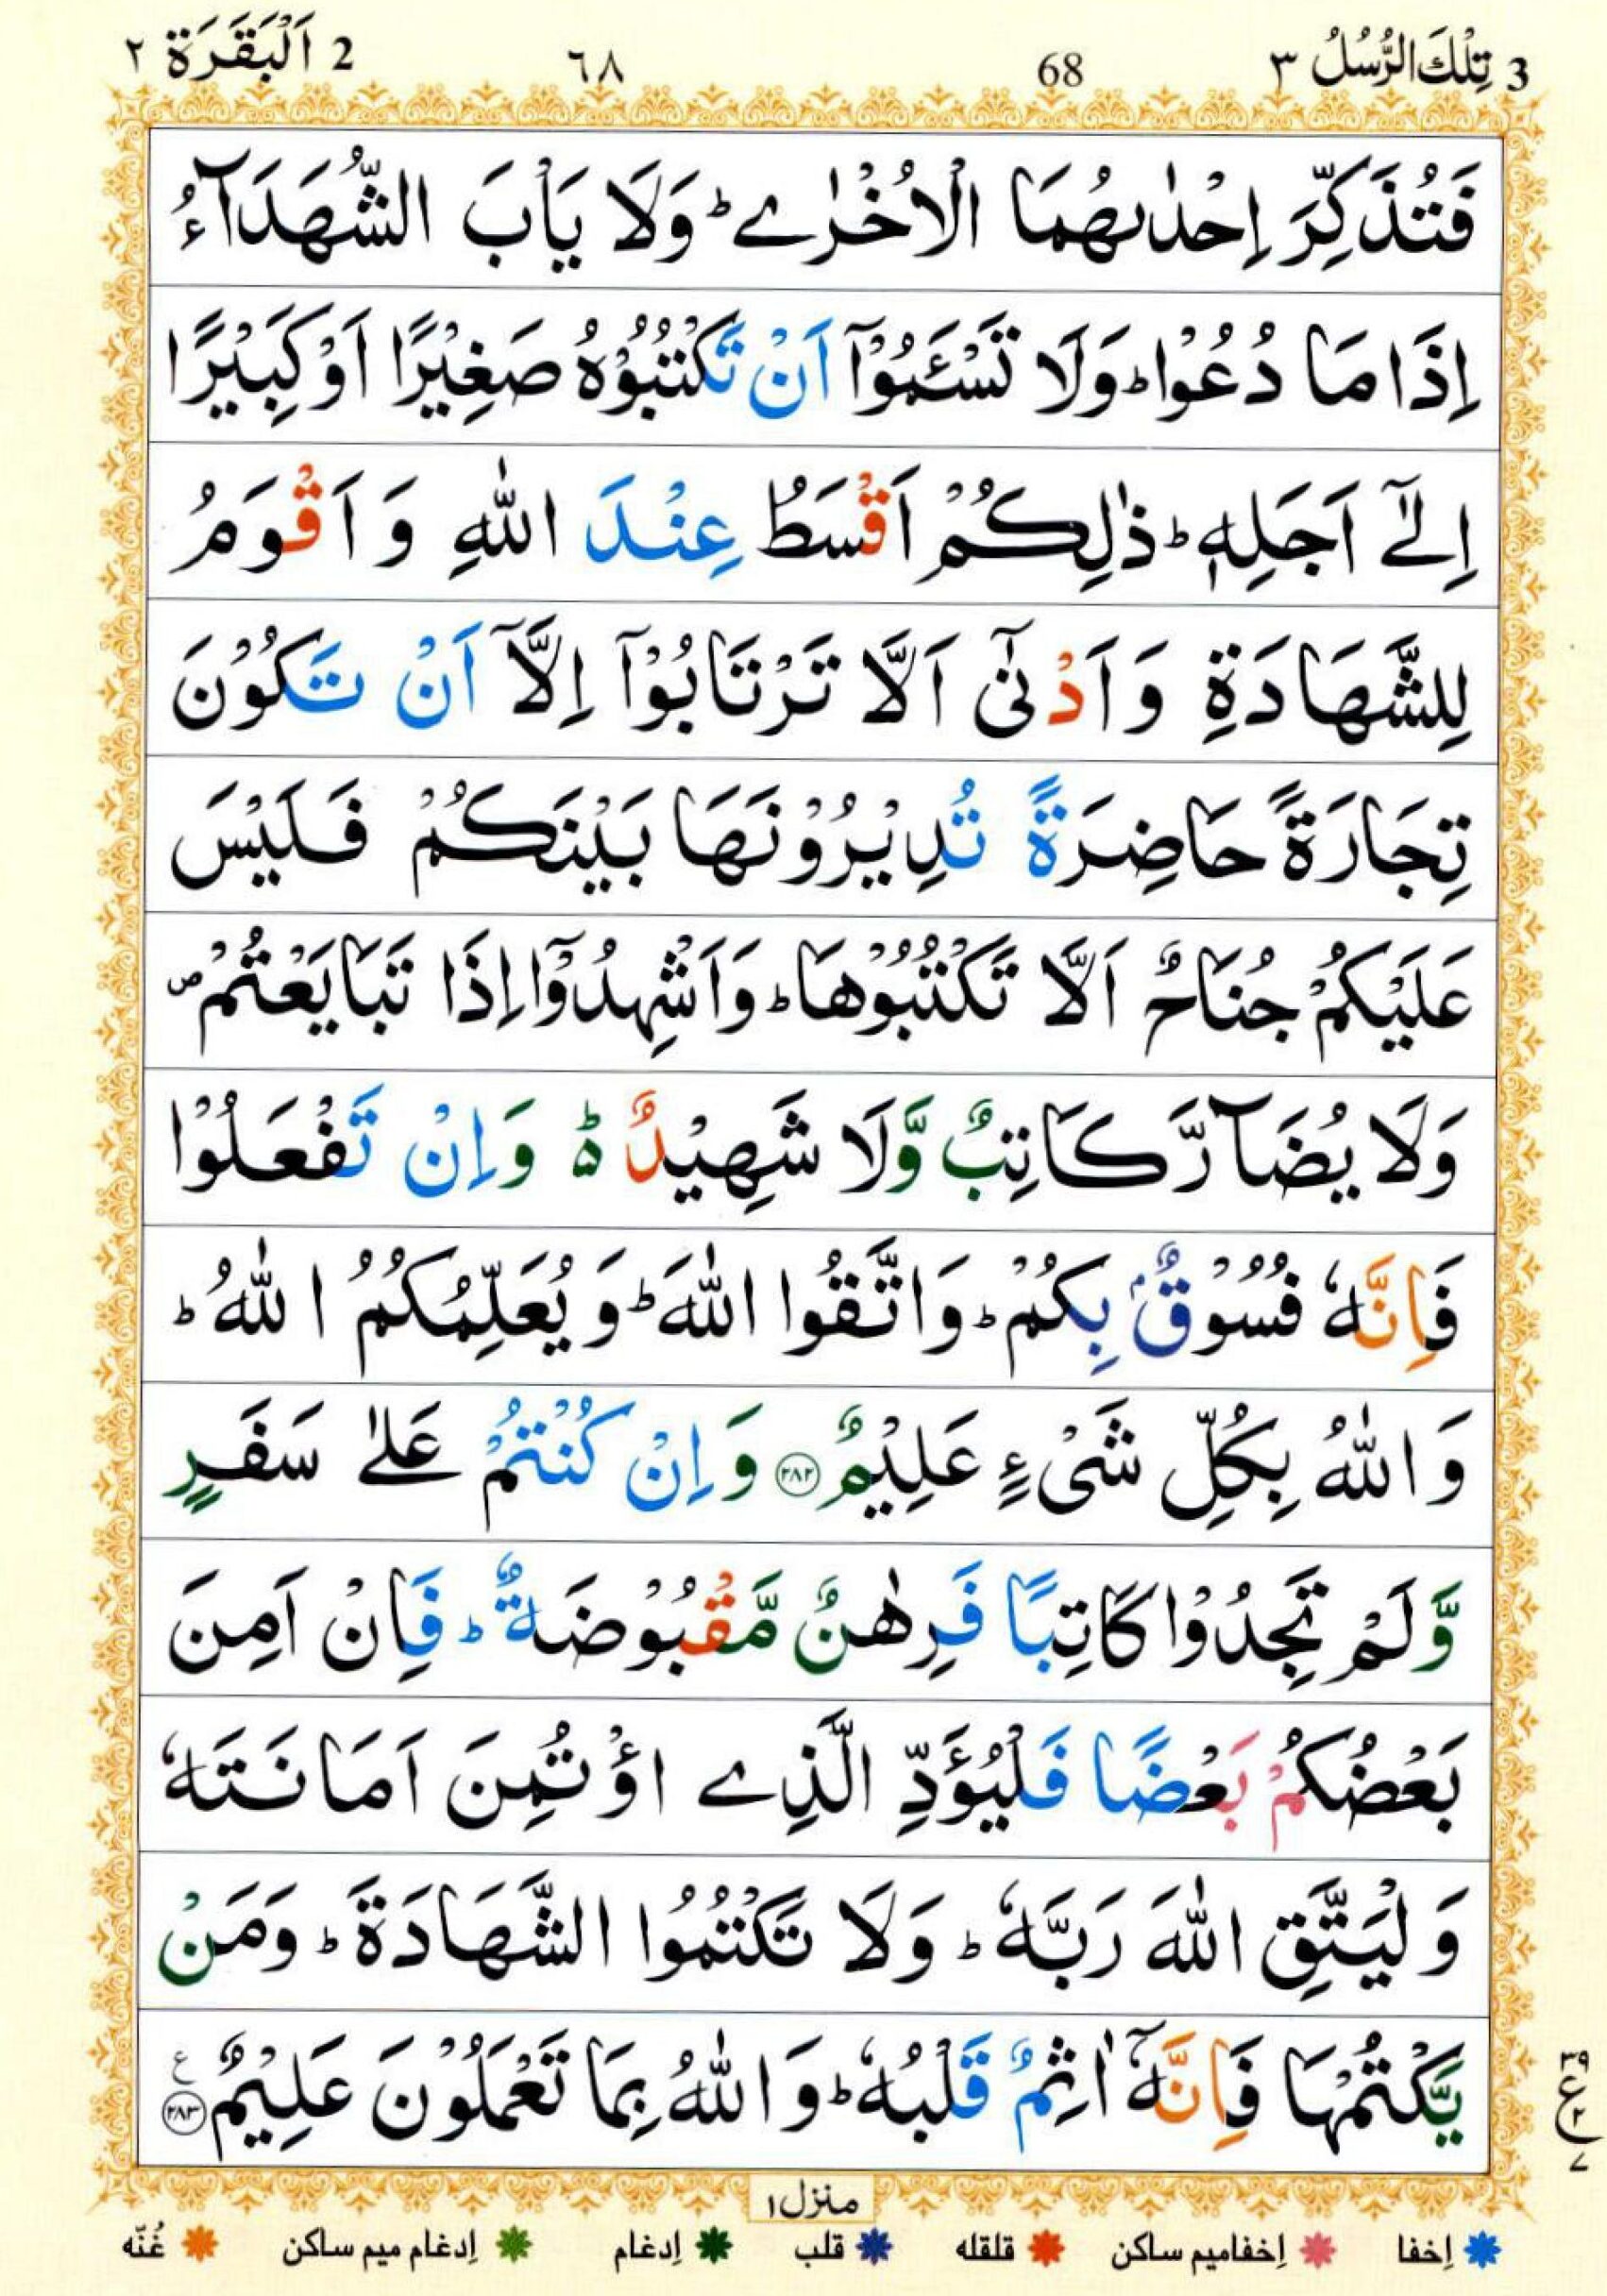 3 تِلْكَ الرُّسُلُ ٣ 68 ٦٨ 2 اَلْبَقَرَة ٢
فَتُذَكِّرَ اِحْدٰىهُمَا الْاُخْرٰىؕ وَلَا يَاْبَ الشُّهَدَآءُ
اِذَا مَا دُعُوْاؕ وَلَا تَسْـَٔمُوْۤا اَنْ تَكْتُبُوْهُ صَغِيْرًا اَوْ كَبِيْرًا
اِلٰۤى اَجَلِهٖؕ ذٰلِكُمْ اَقْسَطُ عِنْدَ اللّٰهِ وَ اَقْوَمُ
لِلشَّهَادَةِ وَ اَدْنٰۤى اَلَّا تَرْتَابُوْۤا اِلَّاۤ اَنْ تَكُوْنَ
تِجَارَةً حَاضِرَةً تُدِيْرُوْنَهَا بَيْنَكُمْ فَلَيْسَ
عَلَيْكُمْ جُنَاحٌ اَلَّا تَكْتُبُوْهَاؕ وَاَشْهِدُوْۤا اِذَا تَبَايَعْتُمْ۪
وَلَا يُضَآرَّ كَاتِبٌ وَّلَا شَهِيْدٌ ؕ۬ وَاِنْ تَفْعَلُوْا
فَاِنَّهٗ فُسُوْقٌۢ بِكُمْؕ وَاتَّقُوا اللّٰهَؕ وَيُعَلِّمُكُمُ اللّٰهُؕ
وَاللّٰهُ بِكُلِّ شَيْءٍ عَلِيْمٌ ۝٢٨٢ وَاِنْ كُنْتُمْ عَلٰى سَفَرٍ
وَّلَمْ تَجِدُوْا كَاتِبًا فَرِهٰنٌ مَّقْبُوْضَةٌؕ فَاِنْ اَمِنَ
بَعْضُكُمْ بَعْضًا فَلْيُؤَدِّ الَّذِى اؤْتُمِنَ اَمَانَتَهٗ
وَلْيَتَّقِ اللّٰهَ رَبَّهٗؕ وَلَا تَكْتُمُوا الشَّهَادَةَؕ وَمَنْ
يَّكْتُمْهَا فَاِنَّهٗۤ اٰثِمٌ قَلْبُهٗؕ وَاللّٰهُ بِمَا تَعْمَلُوْنَ عَلِيْمٌ ۝٢٨٣ ع
٣٩
ع
٢
٧
منزل١
اِخفا اِخفامیم ساکن قلقله قلب اِدغام اِدغام میم ساکن غُنّه